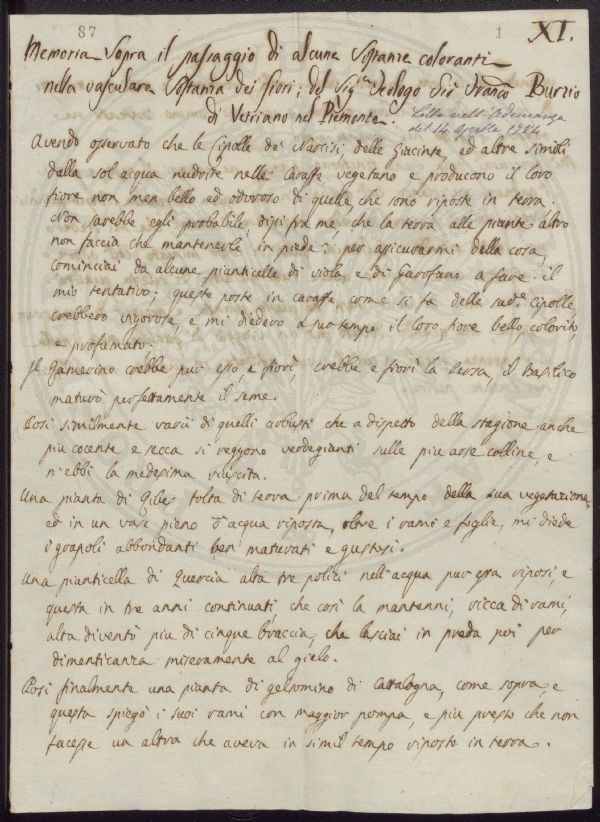 87
1
XI.
Memoria Sopra il passaggio di alcune Sostanze coloranti
nella vasculare Sostanza dei fiori; del Sig.r Teologo Sir Franco Burzio
di Vetriano nel Piemonte.
Letta nell'Adunanza
del 14 Aprile 1784
Avendo osservato che le Cipolle dei Narcisi, delle Giacinte, ed altre simili
dalla sol acqua nudrite nelle Caraffe vegetano e producono il loro
fiore non men bello ed odoroso di quelle che sono riposte in terra.
Non sarebbe egli probabile, dissi fra me, che la terra alle piante altro
non faccia che mantenerle in piede: per assicurarmi della cosa,
cominciai da alcune pianticelle di viola, e di Garofano a fare il
mio tentativo; queste poste in caraffe, come si fa delle sud.e Cipolle,
crebbero vigorose, e mi diedero a suo tempo il loro fiore bello, colorito,
e profumato.
Il Ramerino crebbe pur esso, e fiorì, crebbe e fiorì la Persa, il Basilico
maturò perfettamente il seme.
Così similmente varii di quelli arbusti che a dispetto della stagione anche
piu cocente e secca si veggono verdegianti sulle piu arse colline, e
n'ebbi la medesima riuscita.
Una pianta di Gibes tolta di terra prima del tempo della sua vegetazione,
ed in un vase pieno d'acqua riposta, oltre i rami e foglie, mi diede
i grapoli abbondanti ben maturati e gustosi.
Una pianticella di Quercia alta tre polici nell'acqua pur essa riposi, e
questa in tre anni continuati, che così la mantenni, ricca di rami,
alta diventò piu di cinque braccia, che lasciai in preda poi per
dimenticanza miseramente al gielo.
Così finalmente una pianta di gelsomino di Cattalogna, come sopra, e
questa spiegò i suoi rami con maggior pompa, e piu presto che non
facesse un altra che aveva in simil tempo riposto in terra.